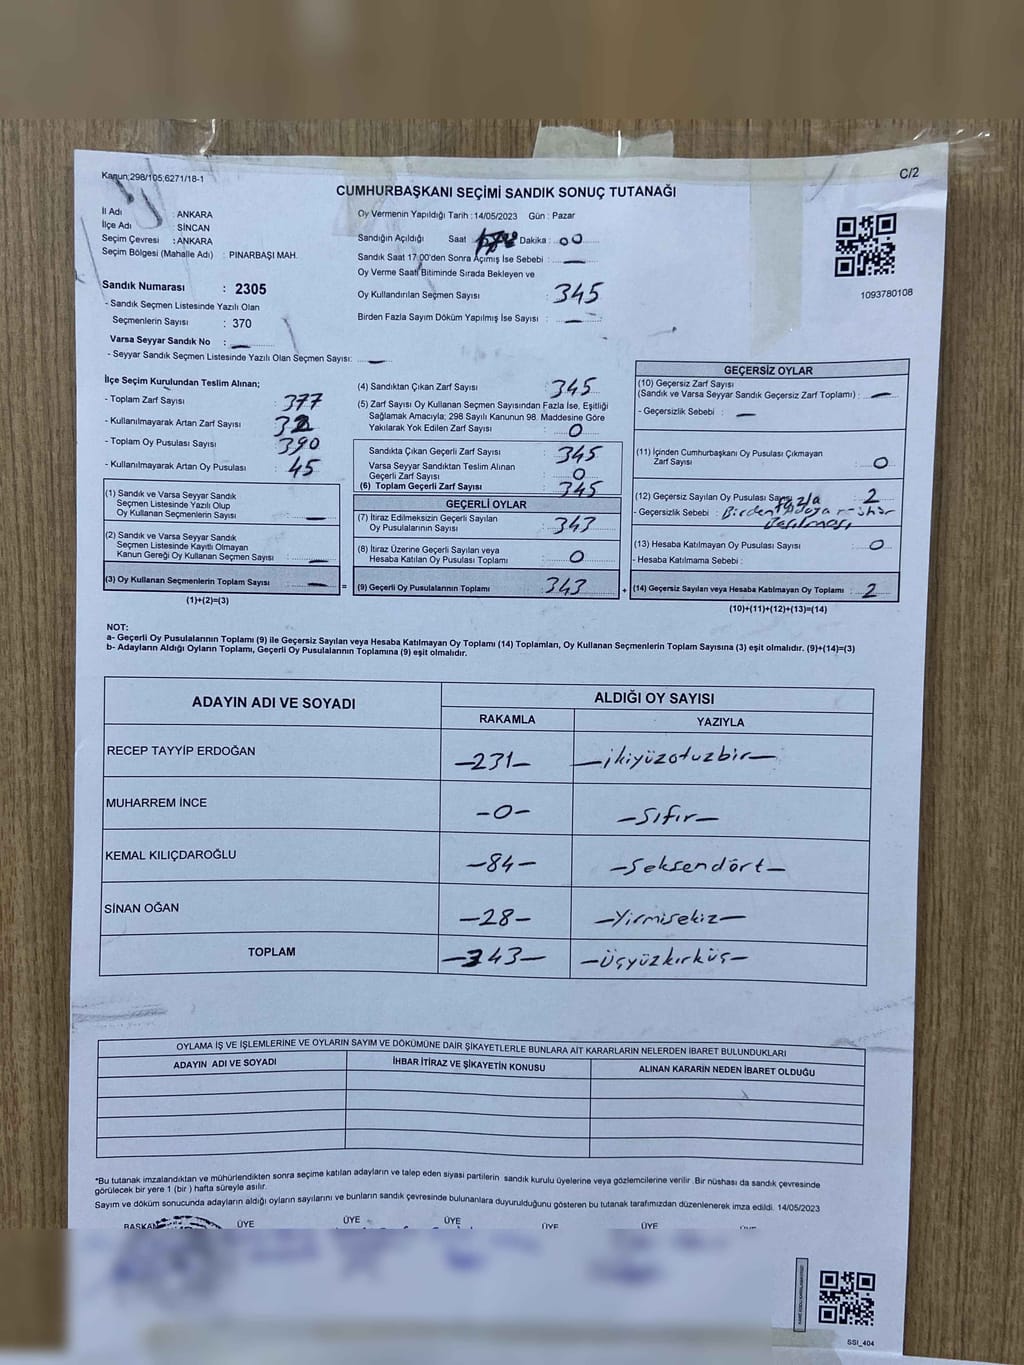 Kanun;298/105,6271/18-1
C/2
CUMHURBAŞKANI SEÇİMİ SANDIK SONUÇ TUTANAĞI
İl Adı : ANKARA
İlçe Adı : SİNCAN
Seçim Çevresi : ANKARA
Seçim Bölgesi (Mahalle Adı) : PINARBAŞI MAH.
Sandık Numarası : 2305
- Sandık Seçmen Listesinde Yazılı Olan
Seçmenlerin Sayısı : 370
Varsa Seyyar Sandık No :
- Seyyar Sandık Seçmen Listesinde Yazılı Olan Seçmen Sayısı:
Oy Vermenin Yapıldığı Tarih : 14/05/2023 Gün : Pazar
Sandığın Açıldığı Saat Dakika : 00
Sandık Saat 17:00'den Sonra Açımış İse Sebebi :
Oy Verme Saati Bitiminde Sırada Bekleyen ve
Oy Kullandırılan Seçmen Sayısı : 345
Birden Fazla Sayım Döküm Yapılmış İse Sayısı :
1093780108
İlçe Seçim Kurulundan Teslim Alınan;
- Toplam Zarf Sayısı : 377
- Kullanılmayarak Artan Zarf Sayısı : 32
- Toplam Oy Pusulası Sayısı : 390
- Kullanılmayarak Artan Oy Pusulası : 45
(1) Sandık ve Varsa Seyyar Sandık
Seçmen Listesinde Yazılı Olup
Oy Kullanan Seçmenlerin Sayısı :
(2) Sandık ve Varsa Seyyar Sandık
Seçmen Listesinde Kayıtlı Olmayan
Kanun Gereği Oy Kullanan Seçmen Sayısı :
(3) Oy Kullanan Seçmenlerin Toplam Sayısı :
(1)+(2)=(3)
(4) Sandıktan Çıkan Zarf Sayısı : 345
(5) Zarf Sayısı Oy Kullanan Seçmen Sayısından Fazla İse, Eşitliği
Sağlamak Amacıyla; 298 Sayılı Kanunun 98. Maddesine Göre
Yakılarak Yok Edilen Zarf Sayısı : 0
Sandıkta Çıkan Geçerli Zarf Sayısı : 345
Varsa Seyyar Sandıktan Teslim Alınan
Geçerli Zarf Sayısı : 0
(6) Toplam Geçerli Zarf Sayısı : 345
GEÇERLİ OYLAR
(7) İtiraz Edilmeksizin Geçerli Sayılan
Oy Pusulalarının Sayısı : 343
(8) İtiraz Üzerine Geçerli Sayılan veya
Hesaba Katılan Oy Pusulaları Toplamı : 0
= (9) Geçerli Oy Pusulalarının Toplamı : 343
GEÇERSİZ OYLAR
(10) Geçersiz Zarf Sayısı
(Sandık ve Varsa Seyyar Sandık Geçersiz Zarf Toplamı) :
- Geçersizlik Sebebi :
(11) İçinden Cumhurbaşkanı Oy Pusulası Çıkmayan
Zarf Sayısı : 0
(12) Geçersiz Sayılan Oy Pusulası Sayısı : 2
- Geçersizlik Sebebi : Birden fazla
(13) Hesaba Katılmayan Oy Pusulası Sayısı : 0
- Hesaba Katılmama Sebebi :
+ (14) Geçersiz Sayılan veya Hesaba Katılmayan Oy Toplamı : 2
(10)+(11)+(12)+(13)=(14)
NOT:
a- Geçerli Oy Pusulalarının Toplamı (9) ile Geçersiz Sayılan veya Hesaba Katılmayan Oy Toplamı (14) Toplamları, Oy Kullanan Seçmenlerin Toplam Sayısına (3) eşit olmalıdır. (9)+(14)=(3)
b- Adayların Aldığı Oyların Toplamı, Geçerli Oy Pusulalarının Toplamına (9) eşit olmalıdır.
ADAYIN ADI VE SOYADI ALDIĞI OY SAYISI
RAKAMLA YAZIYLA
RECEP TAYYİP ERDOĞAN -231- -ikiyüzotuzbir-
MUHARREM İNCE -0- -Sıfır-
KEMAL KILIÇDAROĞLU -84- -Seksendört-
SİNAN OĞAN -28- -Yirmisekiz-
TOPLAM -343- -Üçyüzkırküç-
OYLAMA İŞ VE İŞLEMLERİNE VE OYLARIN SAYIM VE DÖKÜMÜNE DAİR ŞİKAYETLERLE BUNLARA AİT KARARLARIN NELERDEN İBARET BULUNDUKLARI
ADAYIN ADI VE SOYADI İHBAR İTİRAZ VE ŞİKAYETİN KONUSU ALINAN KARARIN NEDEN İBARET OLDUĞU
*Bu tutanak imzalandıktan ve mühürlendikten sonra seçime katılan adayların ve talep eden siyasi partilerin sandık kurulu üyelerine veya gözlemcilerine verilir .Bir nüshası da sandık çevresinde
görülecek bir yere 1 (bir ) hafta süreyle asılır.
Sayım ve döküm sonucunda adayların aldığı oyların sayılarını ve bunların sandık çevresinde bulunanlara duyurulduğunu gösteren bu tutanak tarafımızdan düzenlenerek imza edildi. 14/05/2023
BAŞKAN ÜYE ÜYE ÜYE ÜYE ÜYE
SSİ_404